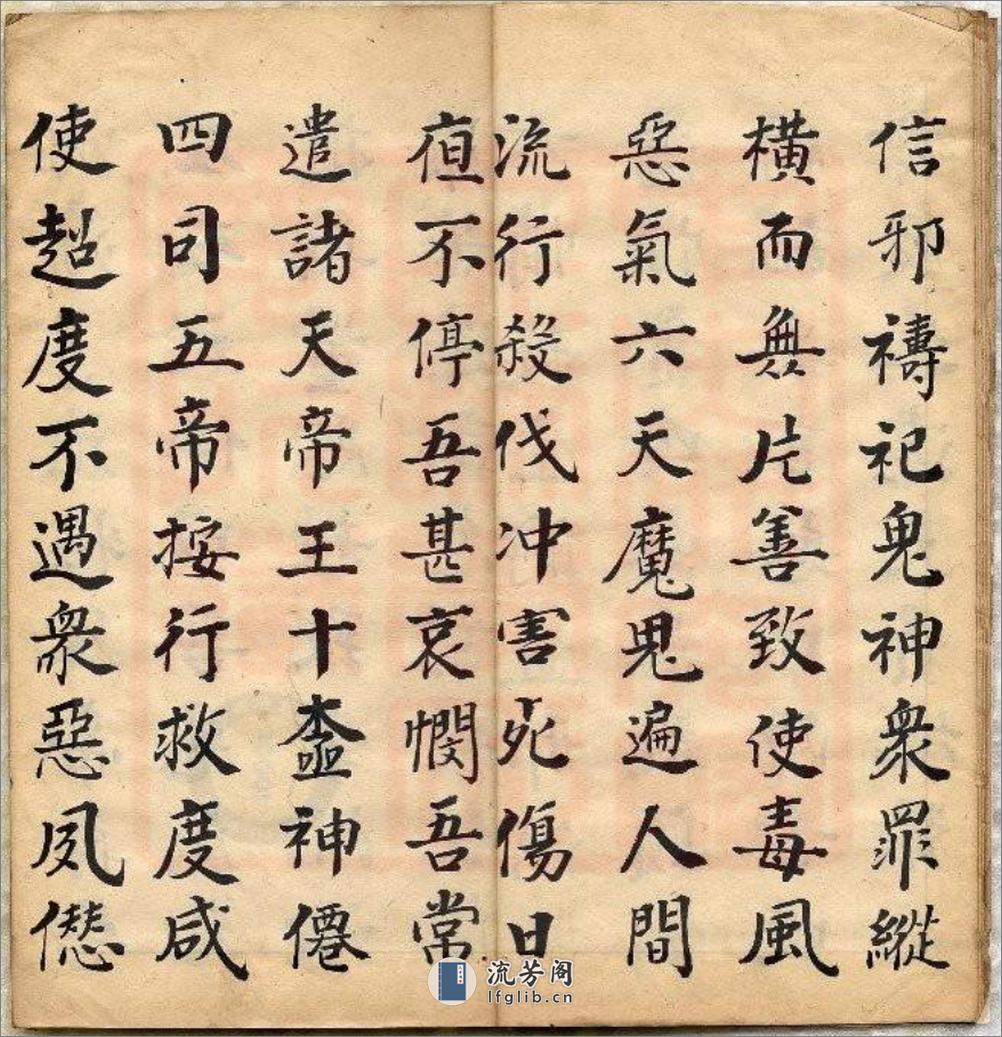 信邪禱祀鬼神衆罪縱
橫而無片善致使毒風
惡氣六天魔鬼遍人間
流行殺伐冲害死傷日
亱不停吾甚哀憫吾常
遣諸天帝王十神僊
四司五帝按行救度咸
使超度不遇衆惡夙愆
流芳阁
lfglib.cn